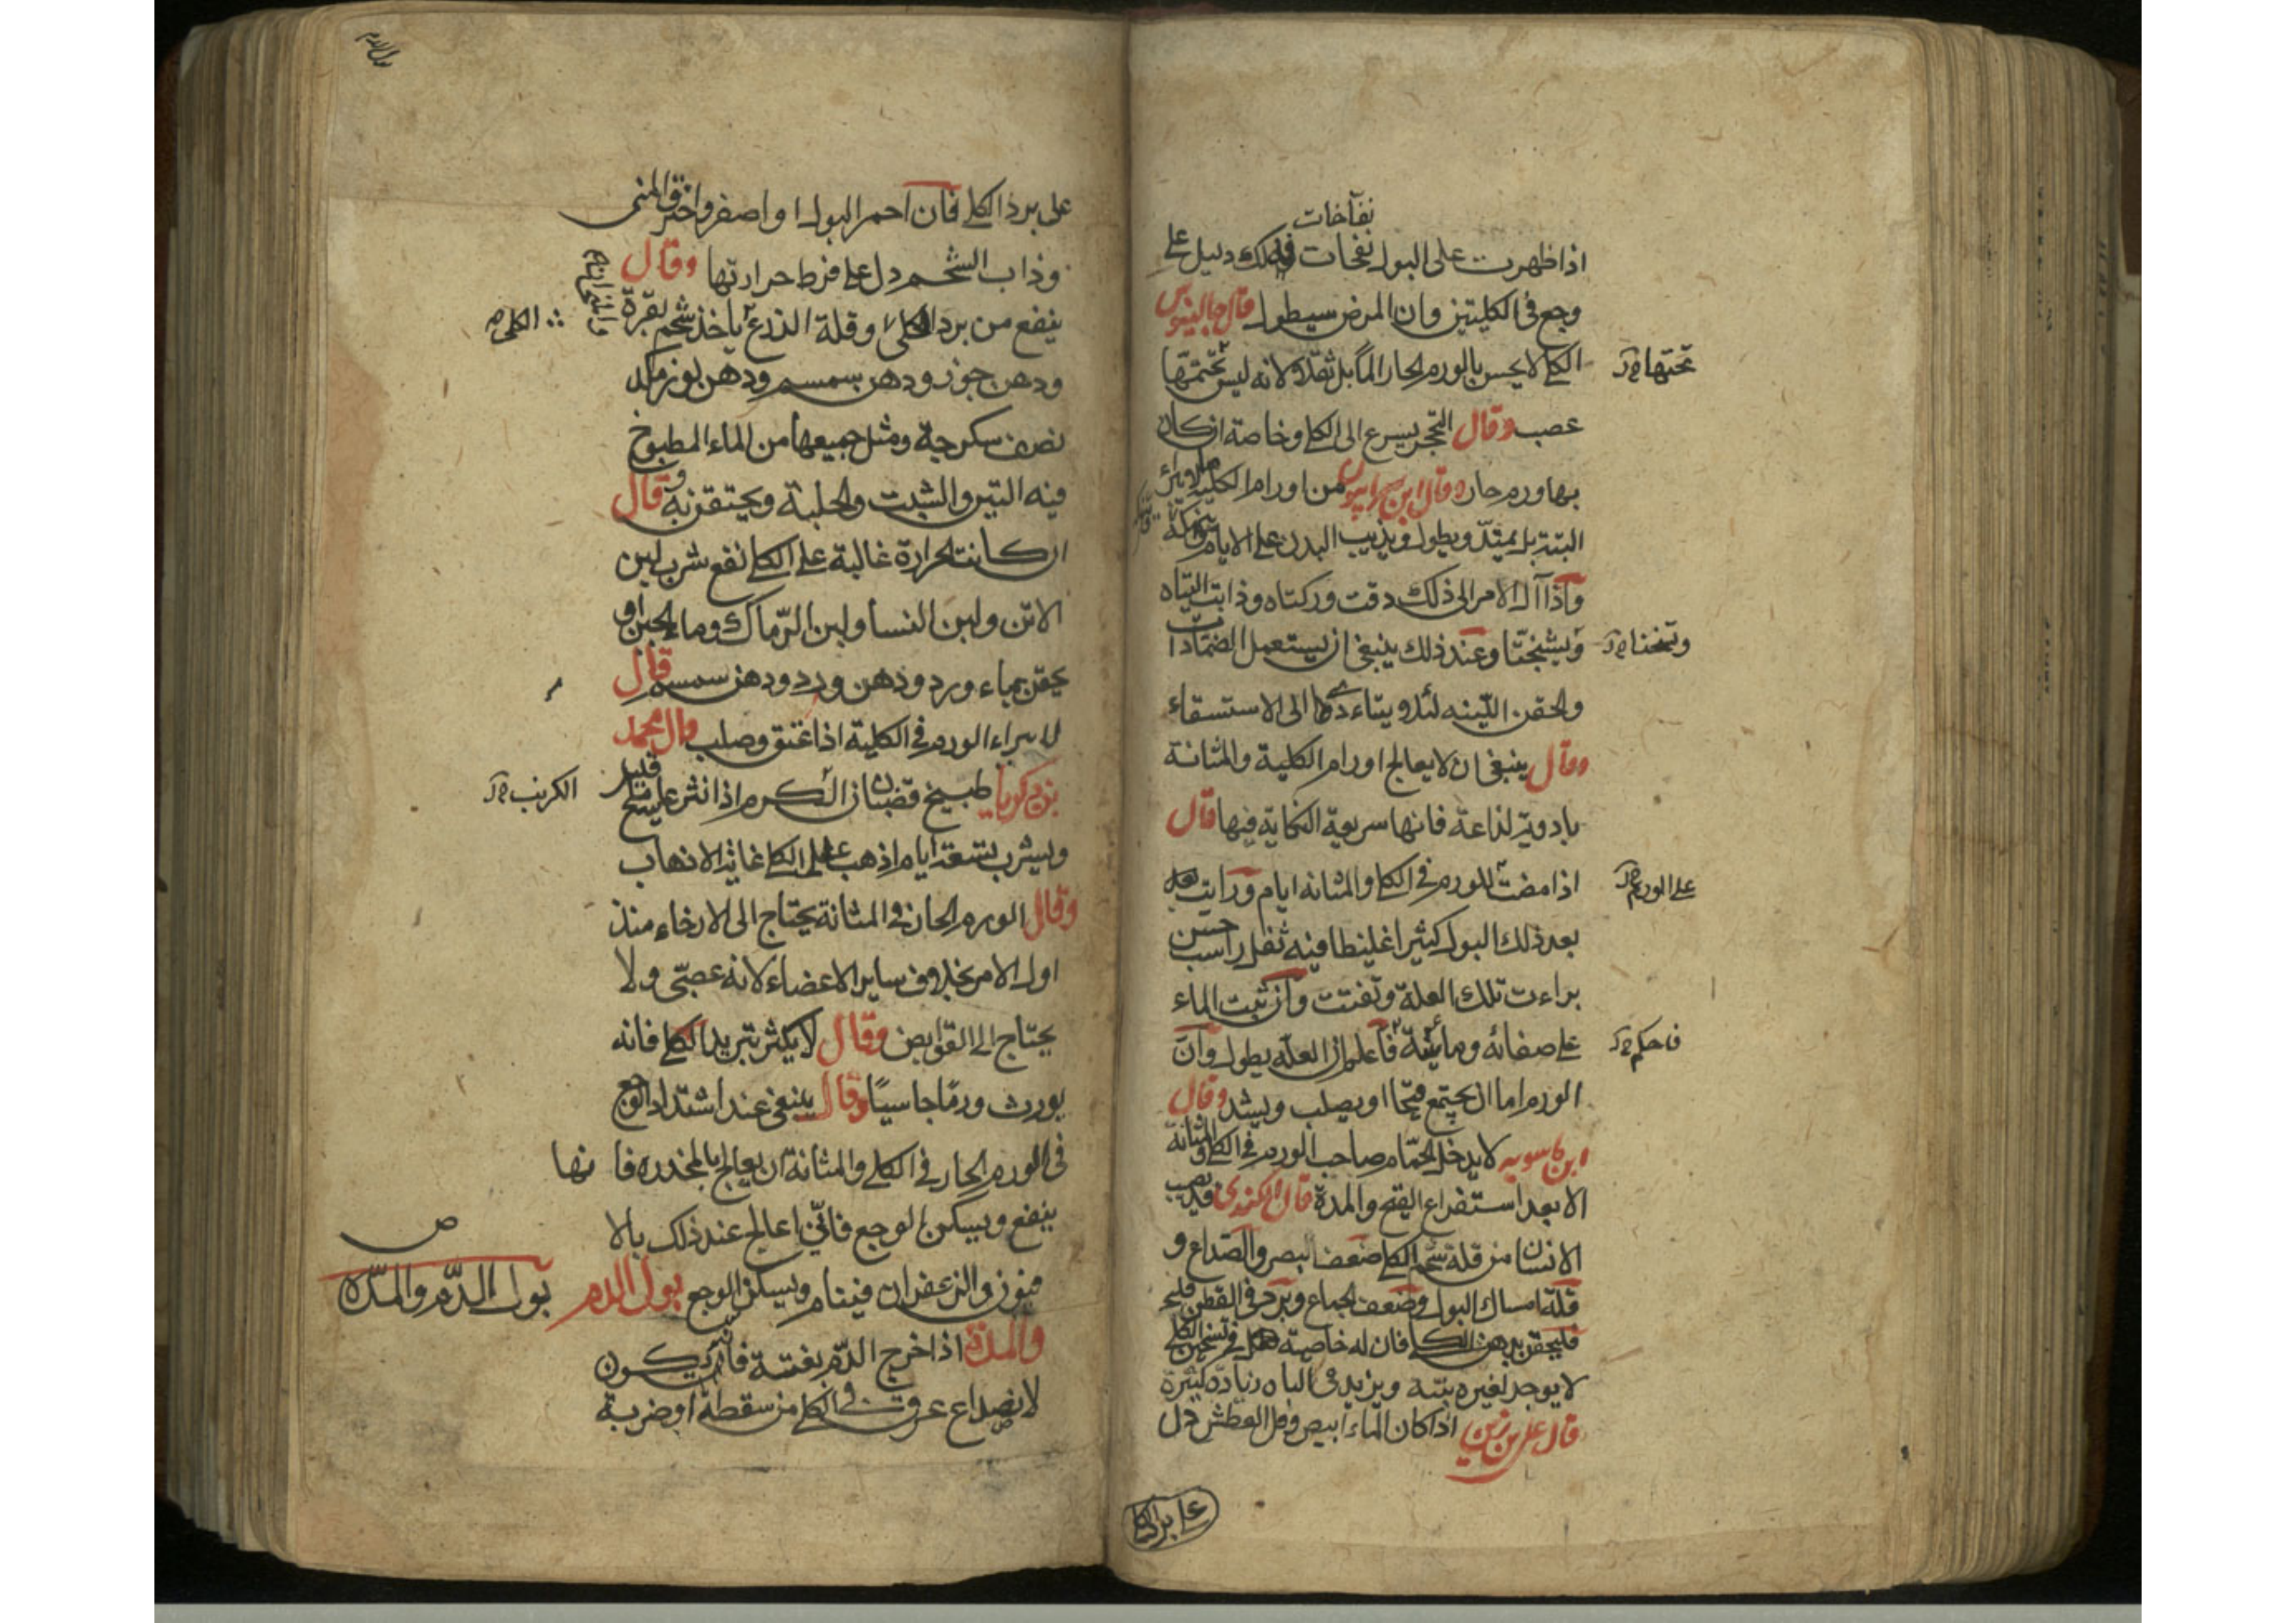 نفاخات
اذا ظهرت على البول نفخات فذلك دليل على
وجع في الكليتين وان المرض سيطول قال جالينوس
الكلى لا يحس بالورم الحار الما بل ثقلا ولانه ليس تحتها
تحتها
عصب وقال التحجر يسرع الى الكلى وخاصة ان كان
بها ورم حار وقال ابن سرابيون من اورام الكلية
البتة بل يمتد ويطول ويذيب البدن على الايام
واذا آل الامر الى ذلك دقت وركتاه وذابت اليتاه
ويشنجتا وعند ذلك ينبغي ان يستعمل الضمادات
والحقن اللينه لئلا ويتأدى الى الاستسقاء
وقال ينبغي ان لا يعالج اورام الكلية والمثانة
بادوية لذاعة فانها سريعة النكاية فيها قال
اذا مضت للورم في الكلى والمثانه ايام ورايت
على الورم
بعد ذلك البول كثيرا غليظا فيه ثفل راسب حسن
براءت تلك العلة وتفتت وان ثبت الماء
على صفائه ومائيته فاعلم ان العلة يطول وان
فاحكم
الورم اما ان يجتمع قيحا او يصلب ويشد وقال
ابن ماسويه لا يدخل الحمام صاحب الورم في الكلى والمثانة
الا بعد استفراع القيح والمدة قال الكندي قد يصيب
الانسان من قلة شحم الكلى ضعف البصر والصداع و
قلة امساك البول وضعف الجماع وبرد في القطن
فليحقن بدهن الكلى فان له خاصية في تسخين الكلى
لا يوجد لغيره بتة ويزيد في الباه زيادة كثيرة
قال علي بن زين اذا كان الماء ابيض وقل العطش دل
على برد الكلى
على برد الكلى فان احمر البول او اصفر واحترق المنى
وذاب الشحم دل على فرط حرارتها وقال
ينفع من برد الكلى وقلة الذرع ياخذ شحم بقرة
الكلى
ودهن جوز ودهن سمسم ودهن لوز من كل
نصف سكرجة ومثل جميعها من الماء المطبوخ
فيه التين والشبت والحلبة ويحتقن به وقال
ان كانت الحرارة غالبة على الكلى نفع شرب لبن
الاتن ولبن النسا ولبن الرماك وماء الجبن او
يحقن بماء ورد ودهن ورد ودهن سمسم قال
لا يبراء الورم في الكلية اذا عتق وصلب قال محمد
بن زكريا طبيخ قضبان الكرم اذا نثر عليه
الكرنب
ويشرب بتسعة ايام اذهب علل الكلى غاية الاذهاب
وقال الورم الحار في المثانة يحتاج الى الارخاء منذ
اول الامر بخلاف ساير الاعضاء لانه عصبي ولا
يحتاج الى القوابض وقال لا يكثر تبريد الكلى فانه
يورث ورما جاسيا وقال ينبغي عند اشتداد الوجع
في الورم الحار في الكلى والمثانة ان يعالج بالمخدره فانها
ينفع ويسكن الوجع فاني اعالج عند ذلك بالا
فيون والزعفران فينام ويسكن الوجع بول الدم
بول الدم والمدة
والمدة اذا خرج الدم بغتة فانه يكون
لانصداع عرق في الكلى من سقطة او ضربة